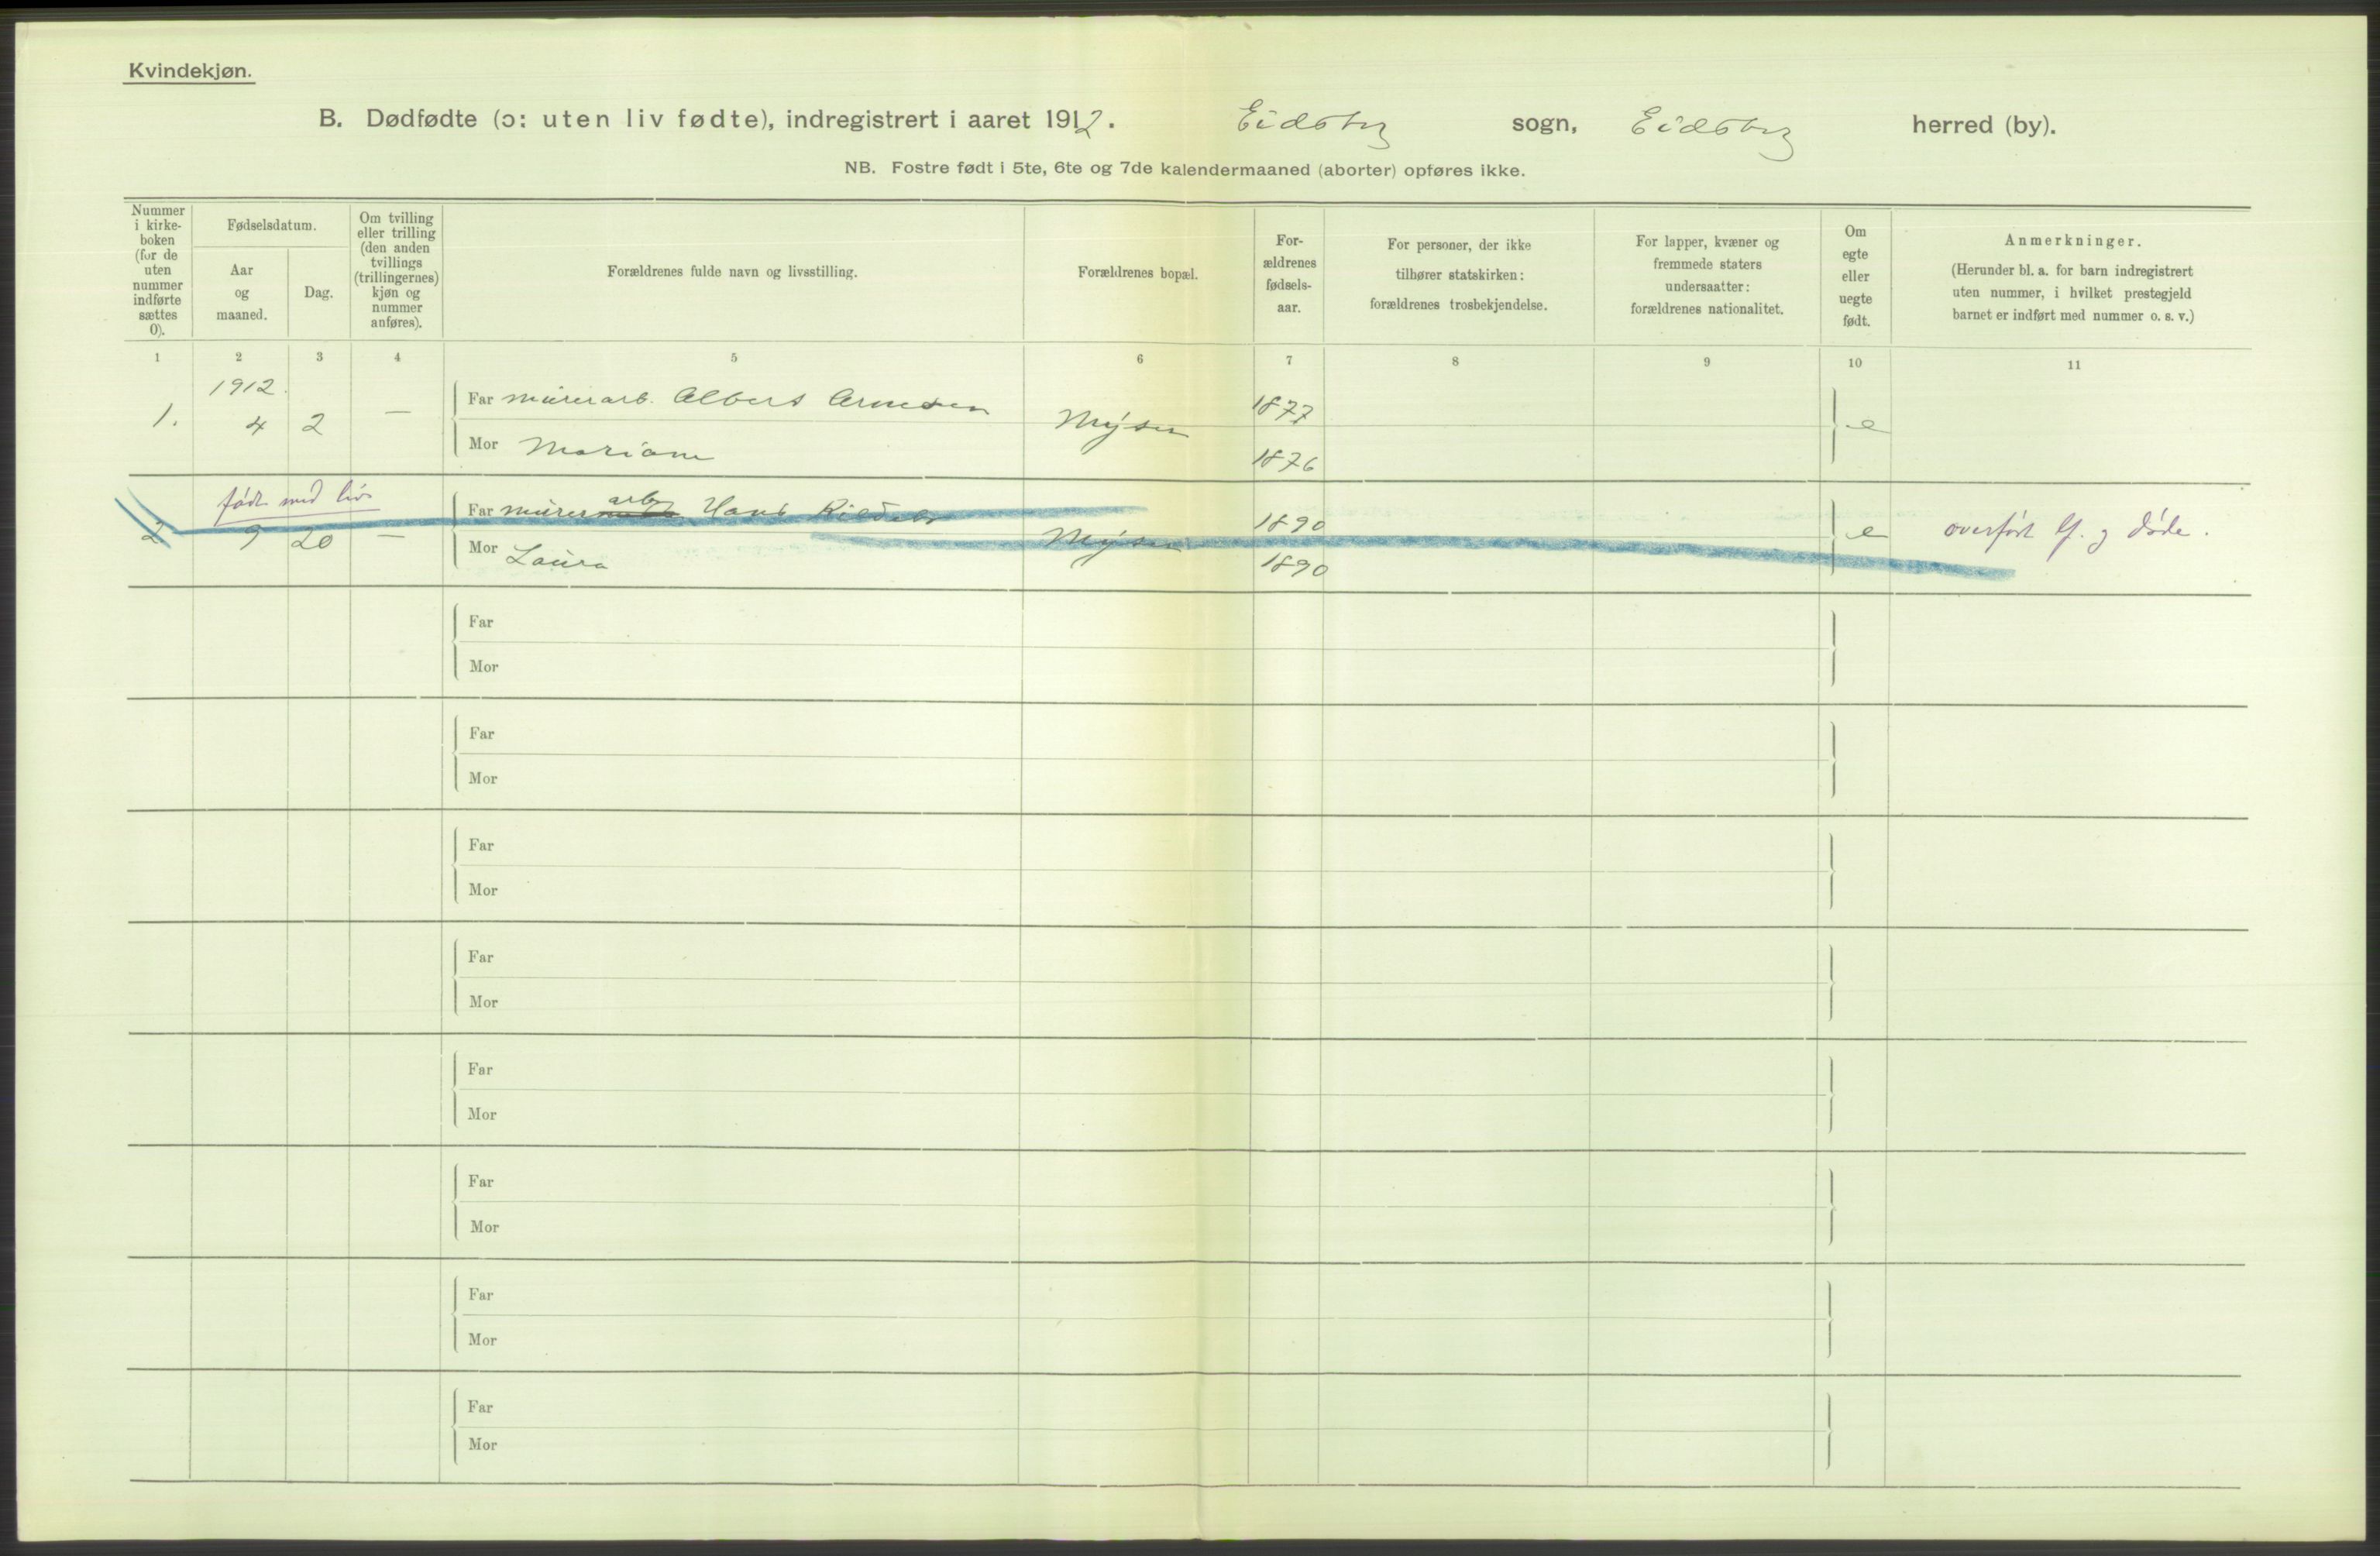 Kvindekjøn.
B. Dødfødte (ɔ: uten liv fødte), indregistrert i aaret 1912. Eidsberg sogn, Eidsberg herred (by).
NB. Fostre født i 5te, 6te og 7de kalendermaaned (aborter) opføres ikke.
Nummer
i kirke-
boken
(for de
uten
nummer
indførte
sættes
0).
Fødselsdatum.
Aar
og
maaned.
Dag.
Om tvilling
eller trilling
(den anden
tvillings
(trillingernes)
kjøn og
nummer
anføres).
Forældrenes fulde navn og livsstilling.
Forældrenes bopæl.
For-
ældrenes
fødsels-
aar.
For personer, der ikke
tilhører statskirken:
forældrenes trosbekjendelse.
For lapper, kvæner og
fremmede staters
undersaatter:
forældrenes nationalitet.
Om
egte
eller
uegte
født.
Anmerkninger.
(Herunder bl. a. for barn indregistrert
uten nummer, i hvilket prestegjeld
barnet er indført med nummer o. s. v.)
1 2 3 4 5 6 7 8 9 10 11
1912.
1. 4 2 — Far murerarb. Albert Arnesen Mysen 1877 e
Mor Mariane 1876
født med liv
2 9 20 — Far murer arb. Hans Mysen 1890 e overført lf. og døde.
Mor Laura 1890
Far
Mor
Far
Mor
Far
Mor
Far
Mor
Far
Mor
Far
Mor
Far
Mor
Far
Mor